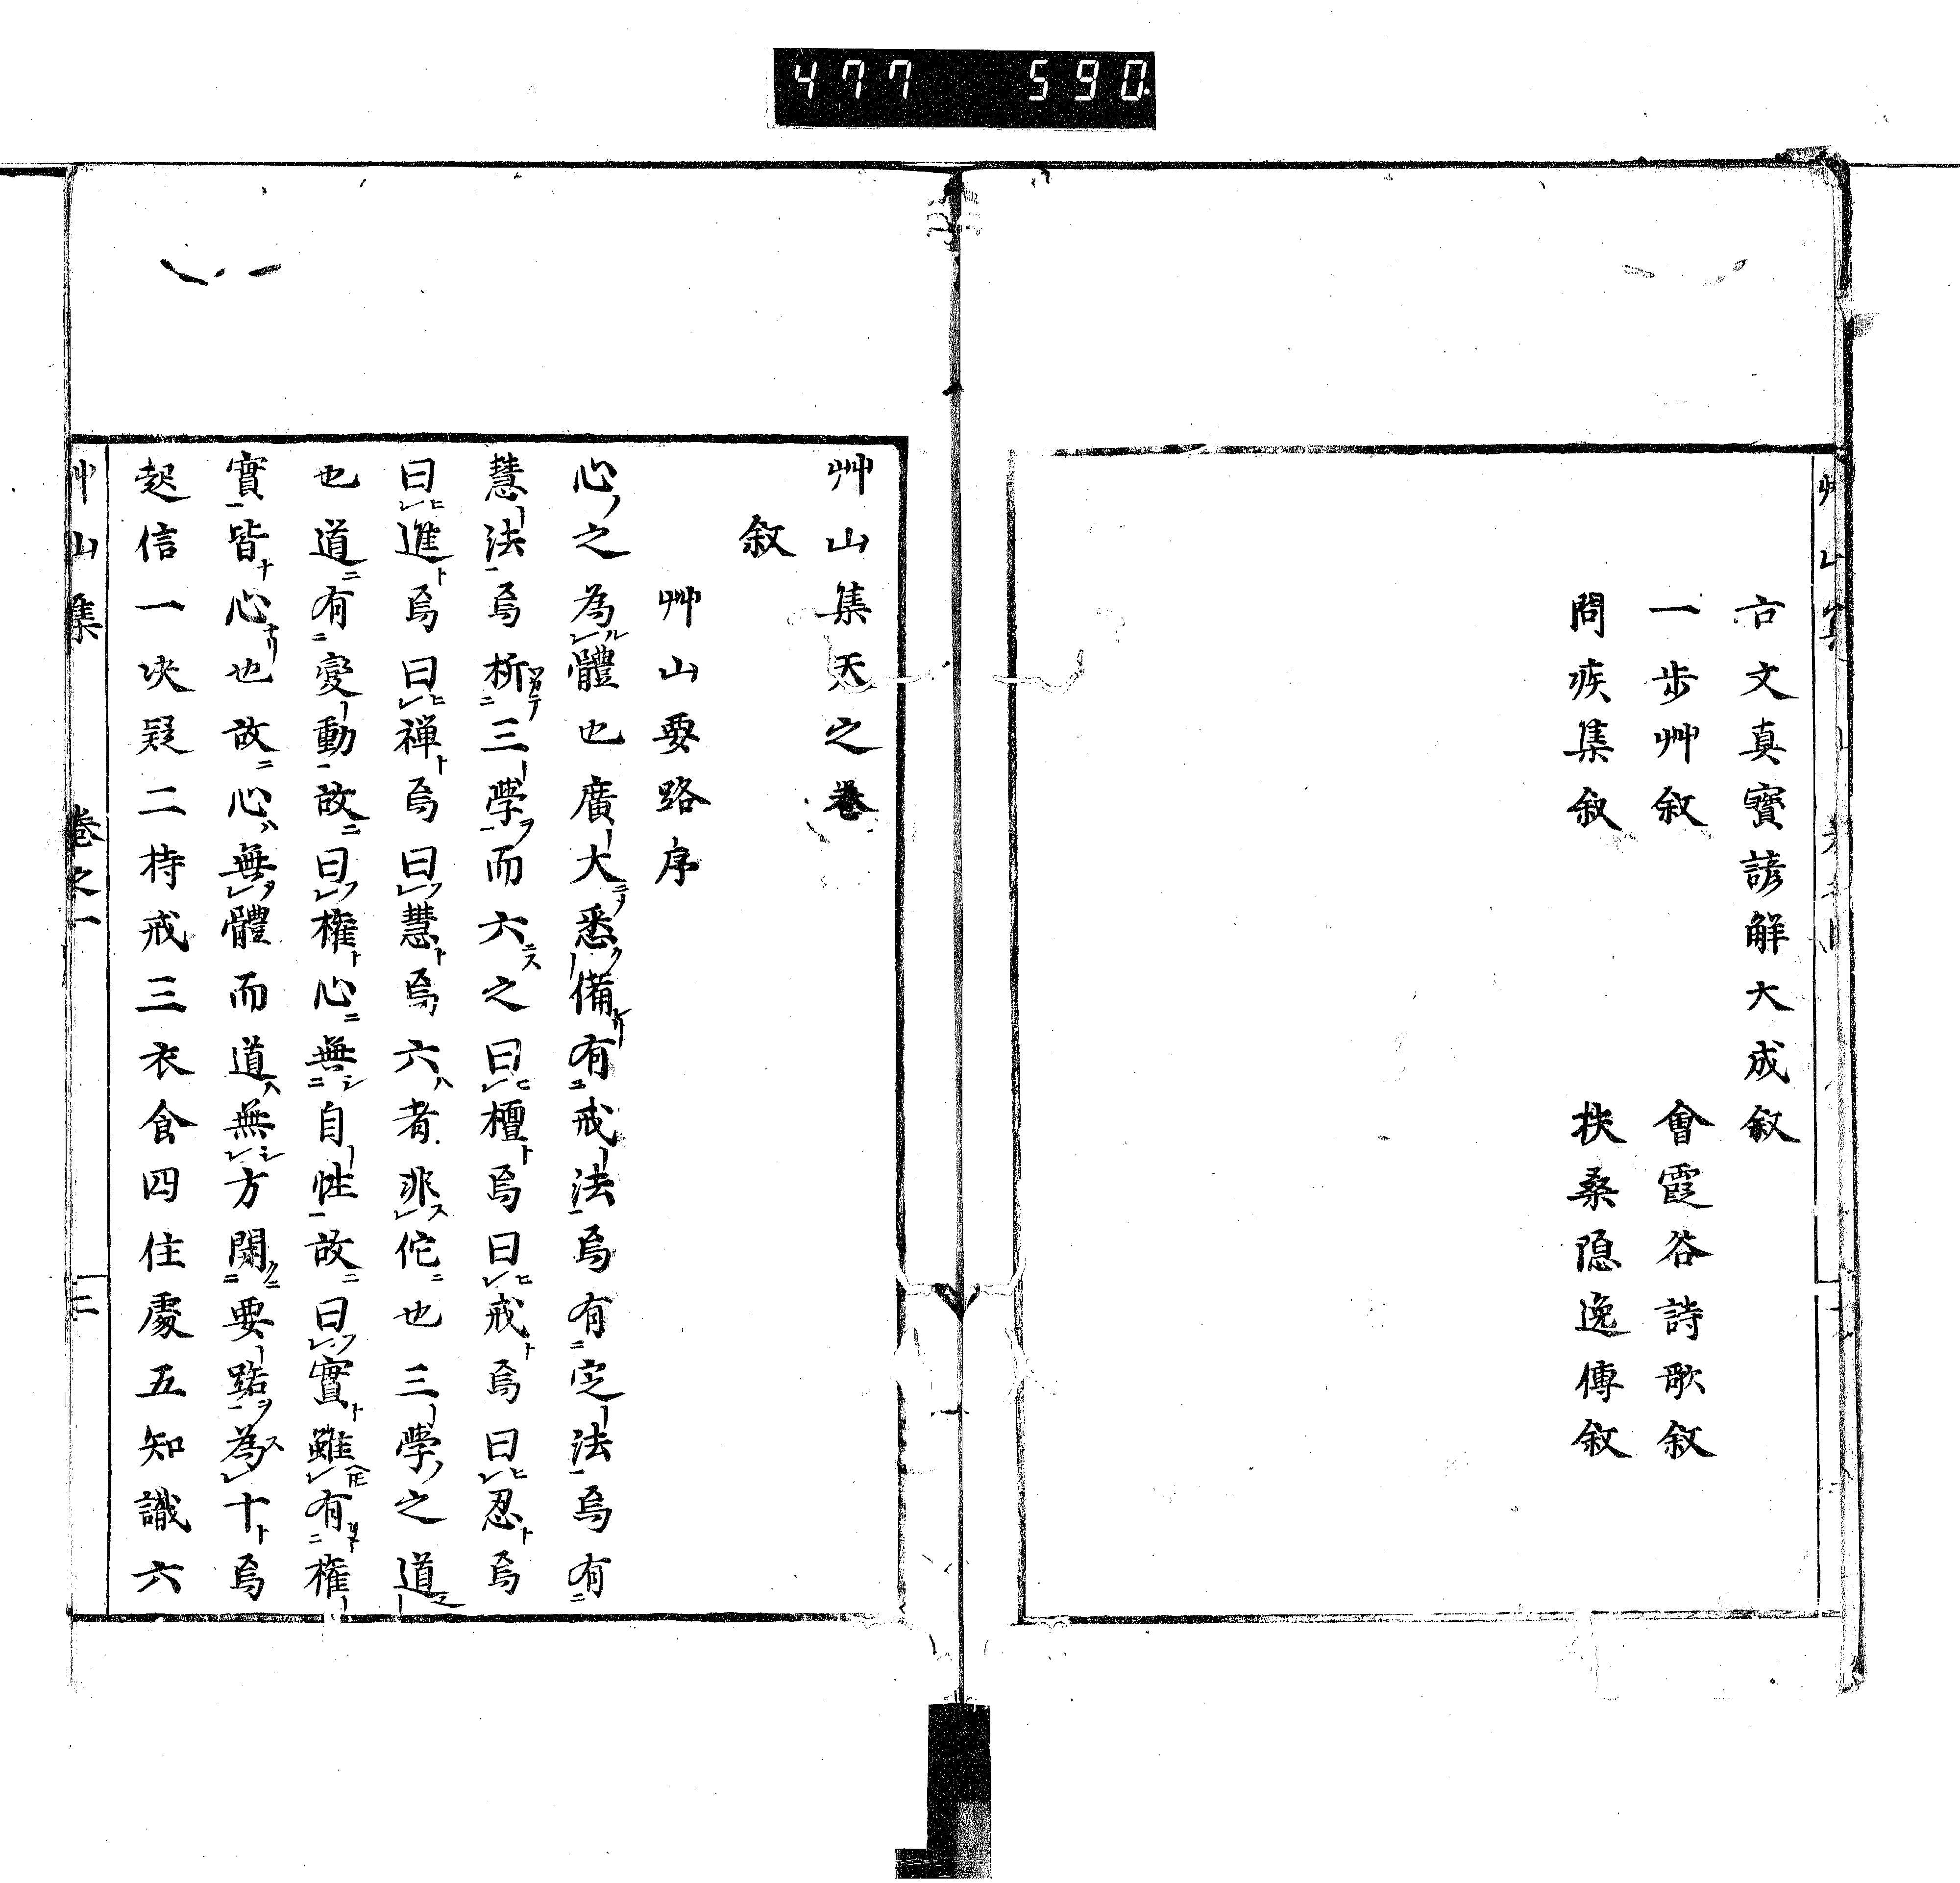 477 590
古文真寶諺解大成叙
一步艸叙　會霞谷詩歌叙
問疾集叙　扶桑隠逸傳叙
艸山集天之卷
叙
艸山要路序
心之為體也廣大悉備有戒法焉有定法焉有
慧法焉析三學而六之曰檀焉曰戒焉曰忍焉
曰進焉曰禅焉曰慧焉六者非佗也三學之道
也道有變動故曰權心無自性故曰實雖有權
實皆心也故心無體而道無方開要路為十焉
起信一决疑二持戒三衣食四住處五知識六
艸山集　卷之一　三